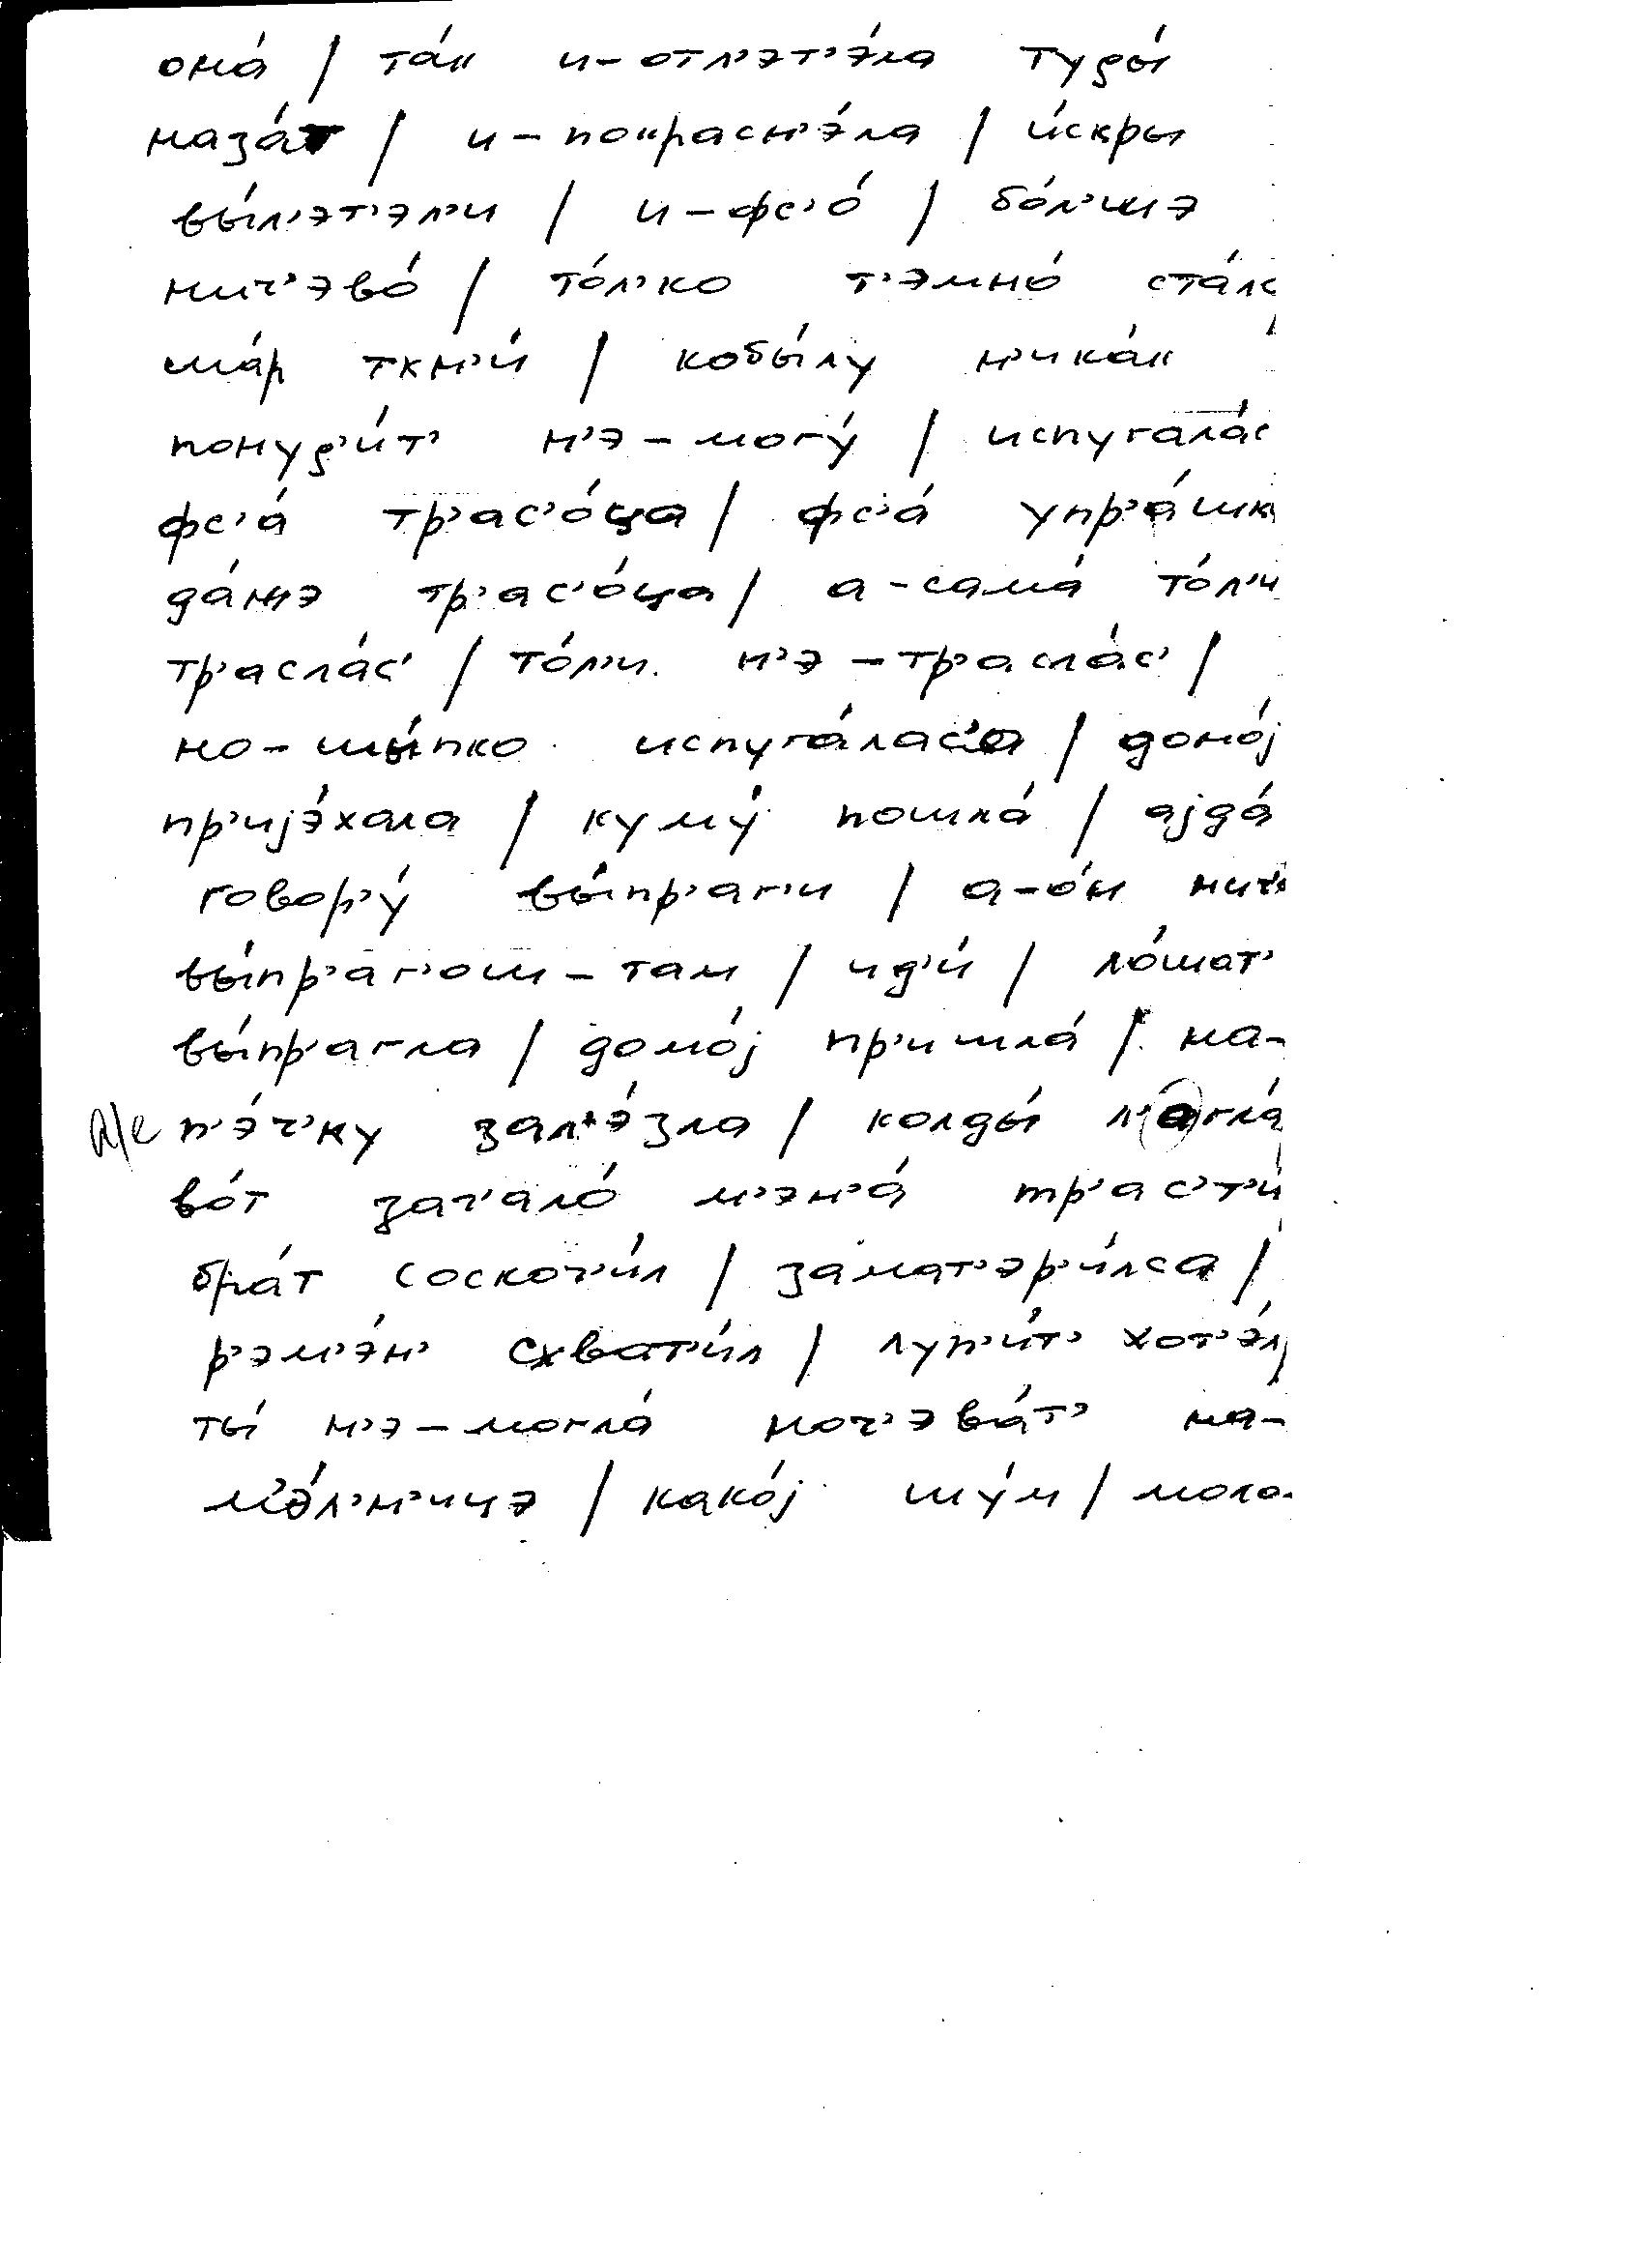 она́ / та́к и-отл'эт'э́ла туды́
наза́т / и-покрасн'э́ла / и́скры
вы́л'эт'эл'и / и-фс'о́ / бо́л'шэ
нич'эво́ / то́л'ко т'эмно́ ста́ло
ша́р ткн'и́ / кобы́лу н'ика́к
понуд'и́т' н'э-могу́ / испугала́с
фс'а́ тр'ас'о́ца / фс'а́ упр'а́шк
да́жэ тр'ас'о́ца / а-сама́ то́л'и
тр'асла́с' / то́л'и н'э-тр'асла́с' /
но-шы́пко испуга́лас'а / домо́j
пр'иjэ́хала / куму́ пошла́ / аjда́
говор'у́ вы́пр'аг'и / а-о́н нич'
вы́пр'аг'ош-там / ид'и́ / ло́шат'
вы́пр'агла / домо́j пр'ишла́ / на-
а/е п'э́ч'ку зал'э́зла / колды́ л'(а)гла́
во́т зач'ало́ м'эн'а́ тр'ас'т'и́
бра́т соскоч'и́л / замат'эр'и́лса /
р'эм'э́н' схват'и́л / луп'и́т' хот'э́л /
ты́ н'э-могла́ ноч'эва́т' на-
м'э́л'н'ицэ / како́j шу́м / моло-